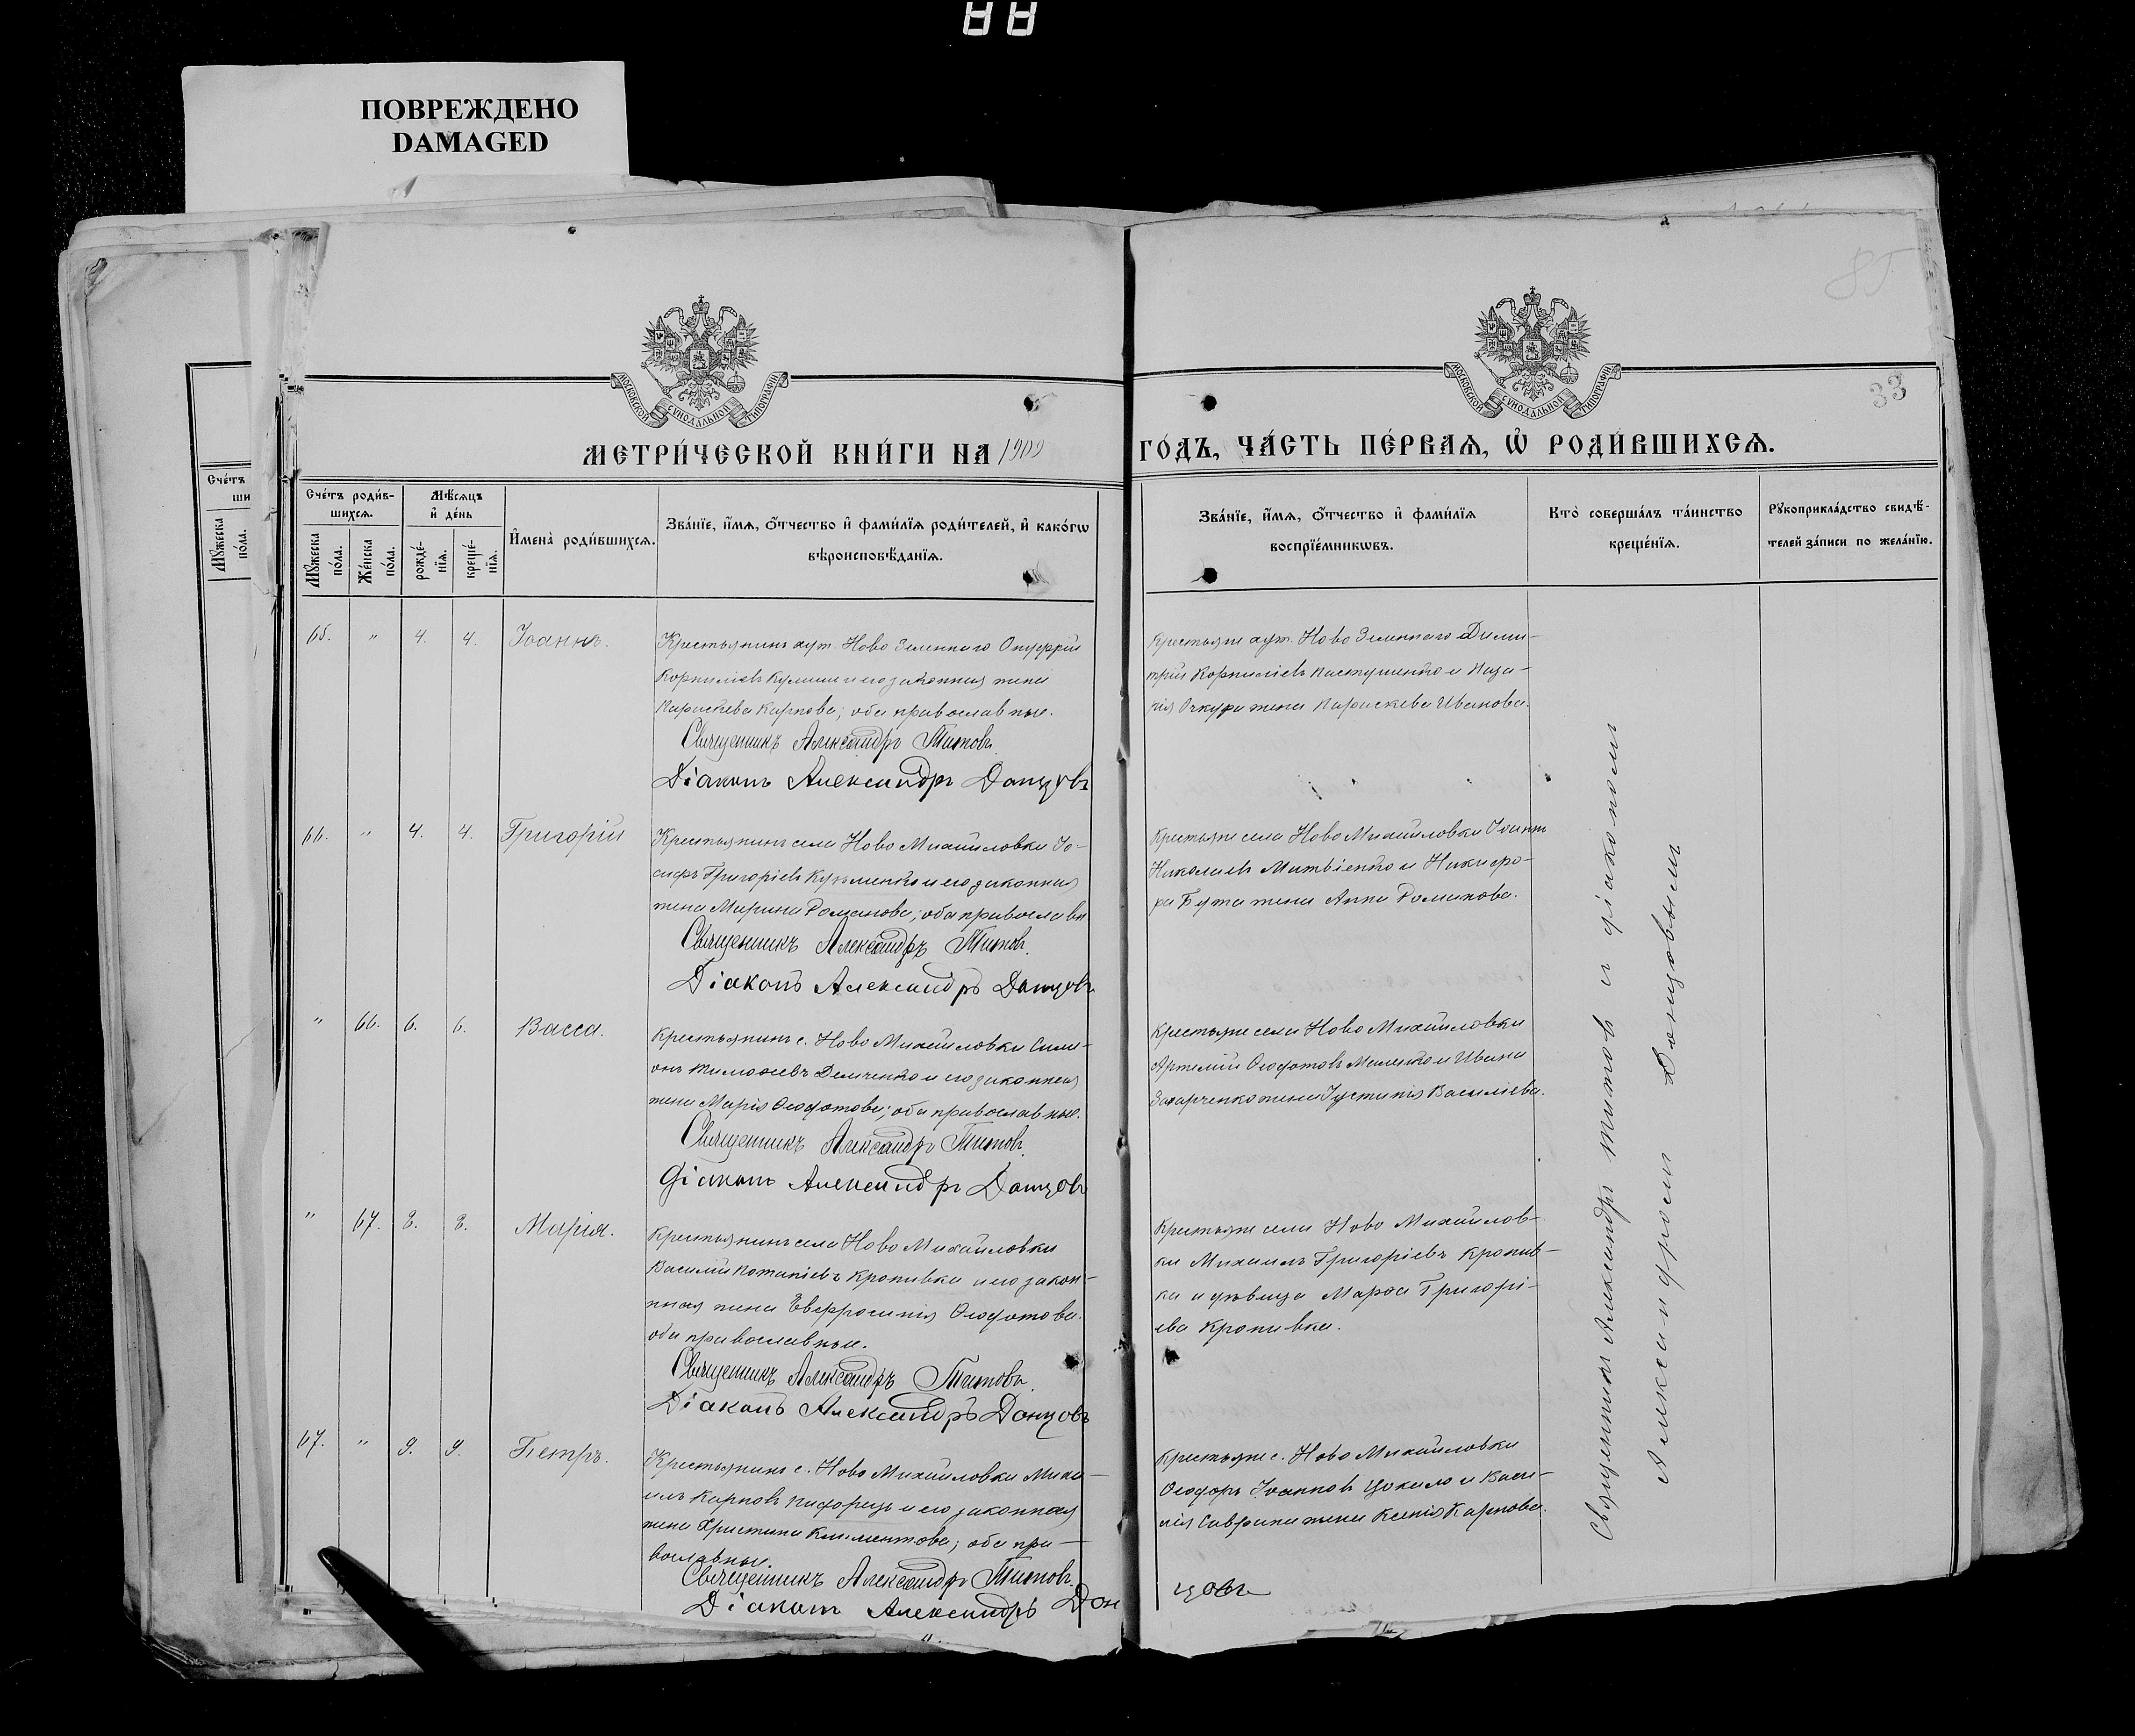 88
ПОВРЕЖДЕНО
DAMAGED
85
33
МОСКОВСКОЙ СѴНОДАЛЬНОЙ ТИПОГРАФІИ
МОСКОВСКОЙ СѴНОДАЛЬНОЙ ТИПОГРАФІИ
МЕТРИ́ЧЕСКОЙ КНИ́ГИ НА 1900 ГО́ДЪ, ЧА́СТЬ ПЕ́РВАѦ, Ѡ҆ РОДИ́ВШИХСѦ.
Сче́тъ
ши
Мꙋ́жеска
по́ла.
Сче́тъ роди́в-
шихсѧ.
Мѣ́сѧцъ
и҆ де́нь
Мꙋ́жеска
по́ла.
Же́нска
по́ла.
рожде́-
нїѧ.
креще́-
нїѧ.
И҆мена̀ роди́вшихсѧ.
Зва́нїе, и҆́мѧ, ѻ҆́тчество и҆ фами́лїѧ роди́телей, и҆ како́гѡ
вѣроисповѣ́данїѧ.
Зва́нїе, и҆́мѧ, ѻ҆́тчество и҆ фами́лїѧ
воспрїе́мникѡвъ.
Кто̀ соверша́лъ та́инство
креще́нїѧ.
Рꙋкоприкла́дство свидѣ́-
телей за́писи по жела́нїю.
65. " 4. 4. Іоаннъ.
Крестьянинъ хут. Ново Зеленнаго Онуфрій
Корниліевъ Кулиш и его законная жена
Параскева Карпова; оба православные.
Священникъ Александръ Титовъ.
Діаконъ Александръ Донцовъ
Крестьяне хут. Ново Зеленнаго Дими-
трій Корниліевъ Пастушенко и Наза-
рія Очкура жена Параскева Иванова.
66. " 4. 4. Григорій
Крестьянинъ села Ново Михайловки Іо-
сифъ Григоріевъ Кузьменко и его законная
жена Марина Романова; оба православн
Священникъ Александръ Титовъ.
Діаконъ Александръ Донцовъ
Крестьяне села Ново Михайловки Іоаннъ
Николаевъ Матвіенко и Никифо-
ра Бута жена Анна Романова.
" 66. 6. 6. Васса.
Крестьянинъ с. Ново Михайловки Симе-
онъ Тимоѳеевъ Демченко и его законная
жена Марія Ѳеодотова; оба православные.
Священникъ Александръ Титовъ.
Діаконъ Александръ Донцовъ
Крестьяне села Ново Михайловки
Артемій Ѳеодотовъ и Ивана
Захарченко жена Іустинія Василіева.
" 67. 8. 8. Марія.
Крестьянинъ села Ново Михайловки
Василій Потапіевъ Кропивка и его закон-
ная жена Евфросинія Ѳеодотова.
оба православные.
Священникъ Александръ Титовъ.
Діаконъ Александръ Донцовъ
Крестьяне села Ново Михайлов-
ки Михаилъ Григоріевъ Кропив-
ка и дѣвица Марѳа Григорі-
ева Кропивка.
67. " 9. 9. Петръ.
Крестьянинъ с. Ново Михайловки Миха-
илъ Карповъ и его законная
жена Христина Климентова; оба пра-
вославные.
Священникъ Александръ Титовъ.
Діаконъ Александръ Донцовъ
Крестьяне с. Ново Михайловки
Ѳеодоръ Іоанновъ Цокало и Васи-
лія Саврана жена Ксенія Карпова.
Священникомъ Александръ Титовъ и діакономъ
Александромъ Донцовымъ